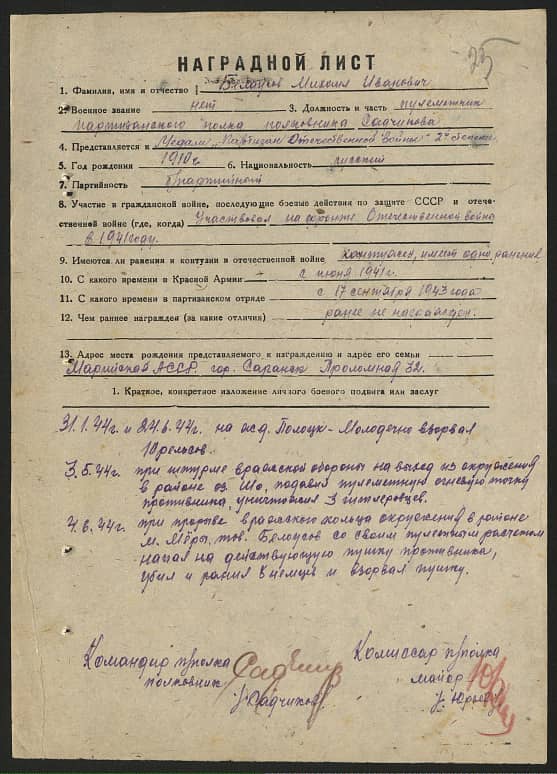 НАГРАДНОЙ ЛИСТ
1. Фамилия, имя и отчество Белоусов Михаил Иванович
2. Военное звание нет 3. Должность и часть пулеметчик
партизанского полка полковника Садчикова
4. Представляется к Медали „Партизан Отечественной Войны" 2й степени
5. Год рождения 1910г 6. Национальность русский
7. Партийность б/партийный
8. Участие в гражданской войне, последующие боевые действия по защите СССР и отече-
ственной войне (где, когда) Участвовал на фронте Отечественной войны
в 1941 году.
9. Имеются ли ранения и контузии в отечественной войне контужен, имеет одно ранение
10. С какого времени в Красной Армии с июня 1941г.
11. С какого времени в партизанском отряде с 17 сентября 1943 года
12. Чем ранее награжден (за какие отличия) ранее не награжден.
13. Адрес места рождения представляемого к награждению и адрес его семьи
АССР гор. Саранск Проломная 32.
1. Краткое, конкретное изложение личного боевого подвига или заслуг
31.1.44г. и 24.6.44г. на ж.д. Полоцк-Молодечно взорвал
10 рельсов.
3.5.44г. при штурме вражеской обороны на выход из окружения
в районе оз. Шо, подавил пулеметную огневую точку
противника, уничтожил 3 гитлеровцев.
4.6.44г. при прорыве вражеского кольца окружения в районе
м. Мдры, тов. Белоусов со своим пулеметным расчетом
напал на действующую пушку противника,
убил и ранил 8 немцев и взорвал пушку.
Командир п/полка
полковник
/Садчиков/
Комиссар п/полка
майор